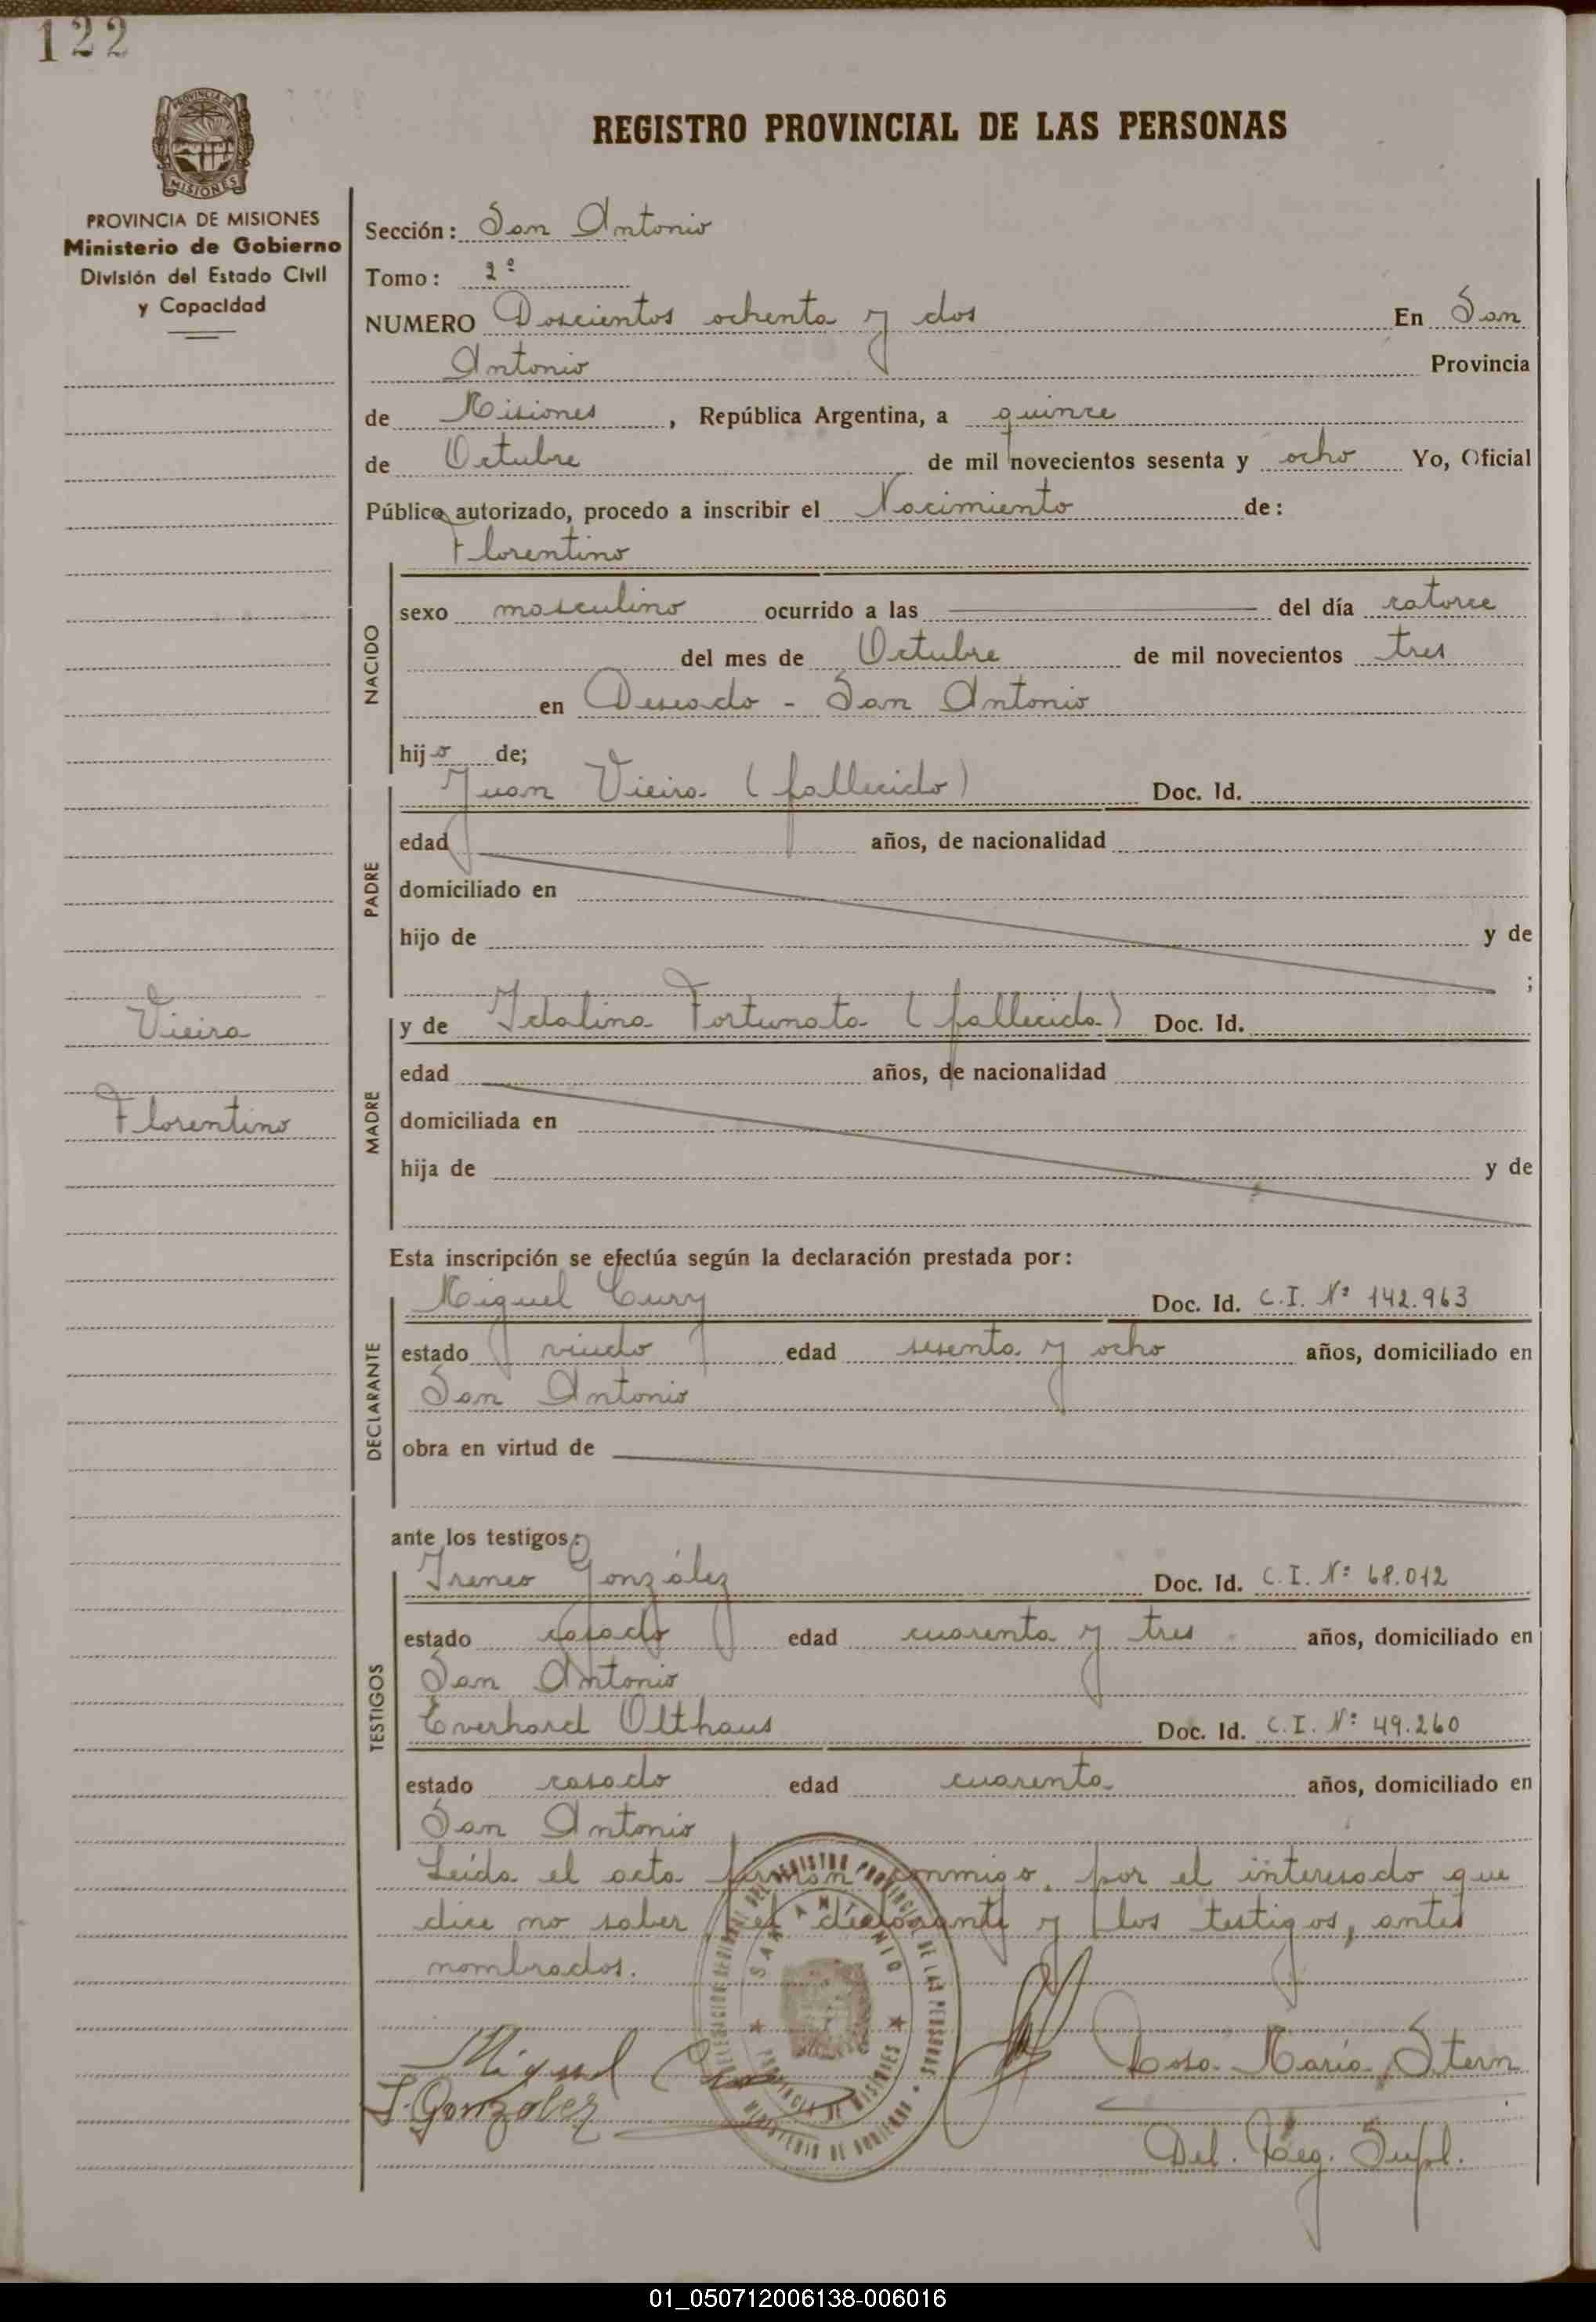 122
PROVINCIA DE MISIONES
MISIONES
PROVINCIA DE MISIONES
Ministerio de Gobierno
División del Estado Civil
y Capacidad
Vieira
Florentino
REGISTRO PROVINCIAL DE LAS PERSONAS
Sección: San Antonio
Tomo: 2º
NUMERO Doscientos ochenta y dos En San
Antonio Provincia
de Misiones, República Argentina, a quince
de Octubre de mil novecientos sesenta y ocho Yo, Oficial
Público autorizado, procedo a inscribir el Nacimiento de:
Florentino
NACIDO
sexo masculino ocurrido a las del día catorce
del mes de Octubre de mil novecientos tres
en Deseado - San Antonio
hijo de;
PADRE
Juan Vieira (fallecido) Doc. Id.
edad años, de nacionalidad
domiciliado en
hijo de y de
;
MADRE
y de Idalina Fortunata (fallecida) Doc. Id.
edad años, de nacionalidad
domiciliada en
hija de y de
Esta inscripción se efectúa según la declaración prestada por:
DECLARANTE
Miguel Cury Doc. Id. C.I. Nº 142.963
estado viudo edad sesenta y ocho años, domiciliado en
San Antonio
obra en virtud de
ante los testigos:
TESTIGOS
Ireneo González Doc. Id. C.I. Nº 68.012
estado casado edad cuarenta y tres años, domiciliado en
San Antonio
Everhard Olthaus Doc. Id. C.I. Nº 49.260
estado casado edad cuarenta años, domiciliado en
San Antonio
Leída el acta firman conmigo, por el interesado que
dice no saber, el declarante y los testigos, antes
nombrados.
DELEGACION REGIONAL DEL REGISTRO PROVINCIAL DE LAS PERSONAS
SAN ANTONIO
PROVINCIA DE MISIONES
MINISTERIO DE GOBIERNO
Miguel
I. Gonzalez
Rosa María Stern
Del. Reg. Supl.
01_050712006138-006016